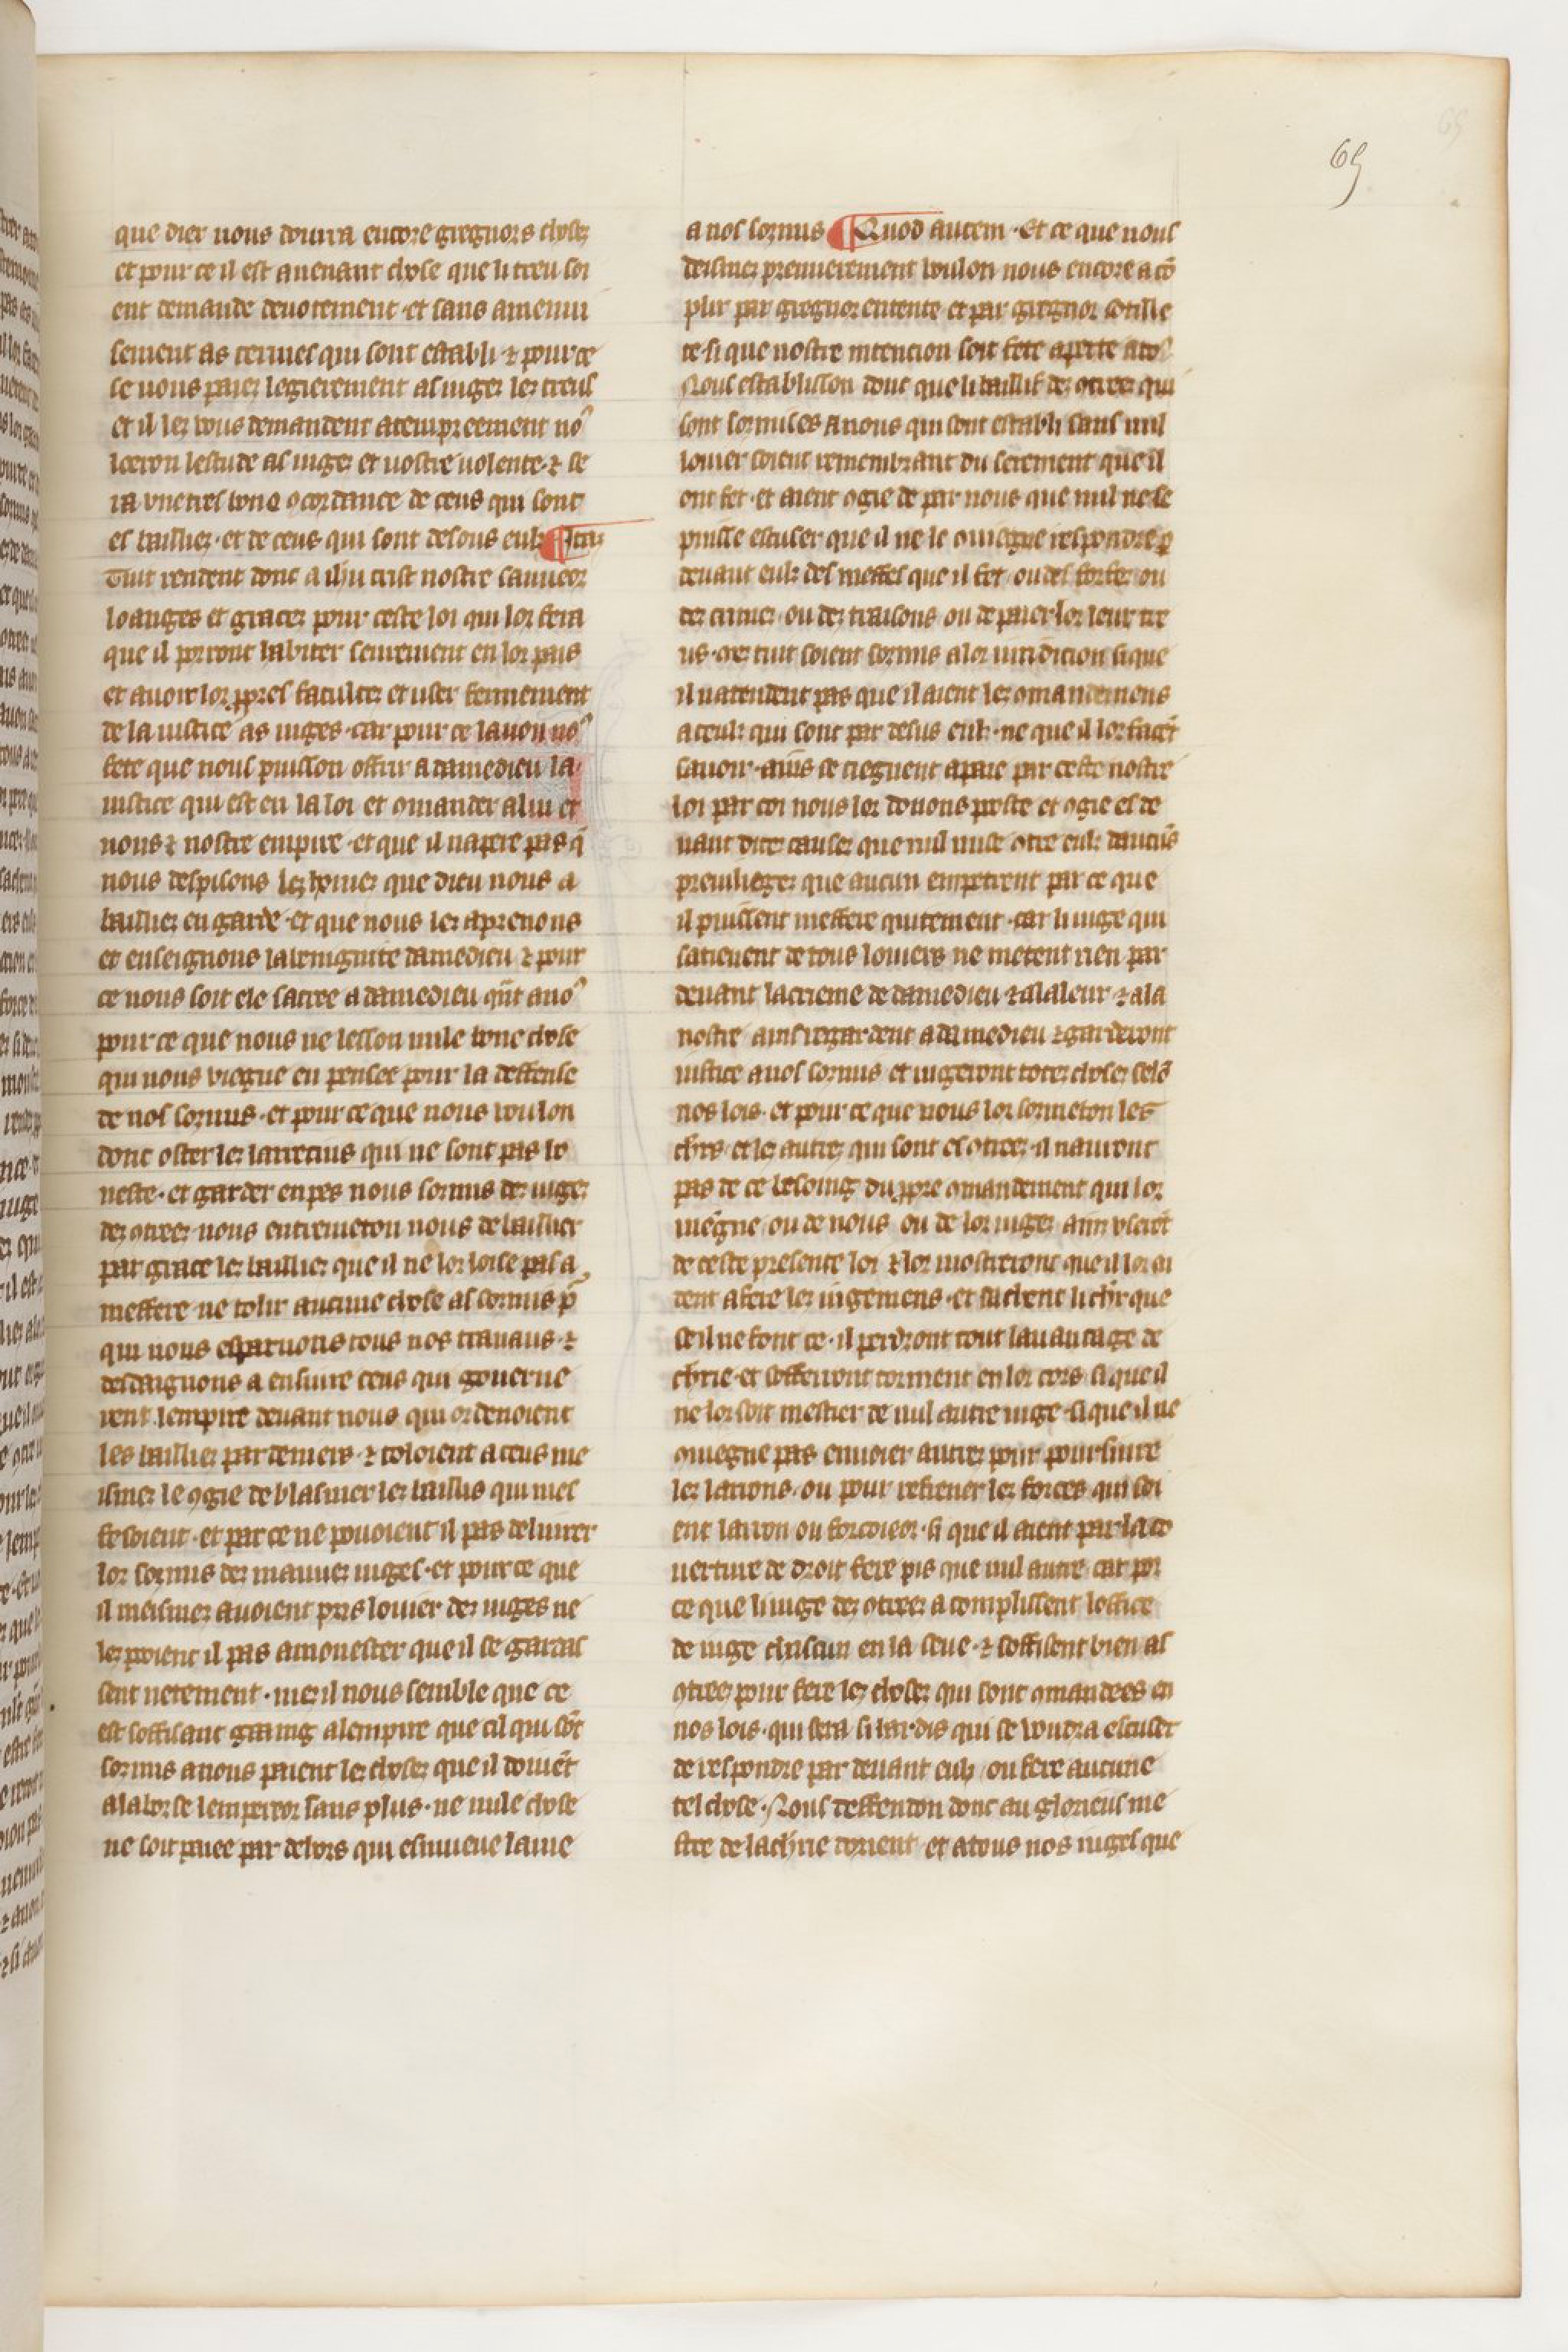 65
que diex nous donra encore gregnors choses
et pour ce il est auenant chose que li treu soi
ent demande deuotement et sans amenui
sement as termes qui sont establi ⁊ pour ce
se uous paiez legierement as iuges les treus
et il les uous demandent atempreement no⁹
loeron lestude as iuges et uostre uolente ⁊ se
ra vne tres bone ꝯcordance de ceus qui sont
es baillies · et de ceus qui sont desous euls ¶ Ita
Tuit rendent donc a ih̄u crist nostre sauueor
loanges et graces pour ceste loi qui lor fera
que il porront habiter seurement en lor pais
et auoir lor ꝓpres facultez et user fermement
de la iustice as iuges · car pour ce lauon no⁹
fete que nous puisson offrir a damedieu la
iustice qui est en la loi et ꝯmander a lui et
nous ⁊ nostre empire · et que il napere pas q̄
nous despisons les homes que dieu nous a
bailliez en garde · et que nous les aprenons
et enseignons la benignite damedieu ⁊ pour
ce nous soit ele sacree a damedieu q̄nt a no⁹
pour ce que nous ne lesson nule bone chose
qui nous viegne en pensee pour la deffense
de nos sozmis · et pour ce que nous voulon
donc oster les larrecins qui ne sont pas ho
neste · et garder en pes nous sozmis des iuges
des ꝯtrees nous entremeton nous de baillier
par grace les baillies que il ne lor loise pas a
meffere ne tolir aucune chose as sozmis p̄
qui nous esparnons tous nos trauaus · ⁊
desdaignons a ensuire ceus qui gouerne
rent lempire deuant nous qui ordenoient
les baillies par deniers · ⁊ toloient a ceus me
ismes le ꝯgie de blasmer les baillis qui mes
fesoient · et par ce ne pouoient il pas deliurer
lor sozmis des mauues iuges · et pour ce que
il meismes auoient pris louier des iuges ne
les poient il pas amonester que il se gardas
sent netement · mes il nous semble que ce
est soffisant graing a lempire que cil qui sōt
sozmis a nous paient les choses que il doiuēt
a la borse lempereor sans plus · ne nule chose
ne soit paiee par dehors qui esmueue la me
a nos sozmis ¶ Quod autem · Et ce que nous
deismes premierement voulon nous encore a cō
plir par gregnor entente et par gregnor sotille
te · si que nostre intention soit fete aperte a to⁹
Nous establisson donc que li baillif des ꝯtrees qui
sont sozmises a nous qui sont establi sans nul
louier soient remembrant du serement que il
ont fet · et aient ꝯgie de par nous que nul ne se
puisse escuser que il ne le ꝯuiegne respondre ꝑ
deuant euls des meffes que il fet / ou des forfez ou
des crimes / ou des traisons ou de paier lor leur tre
us · mes tuit soient sozmis a lor iuridicion si que
il natendent pas que il aient les ꝯmandemens
a ceuls qui sont par desus euls · ne que il lor facēt
sauoir · ains se tiegnent a paie par ceste nostre
loi par coi nous lor donons poste et ꝯgie es de
uant dites causes que nul nuse ꝯtre euls daucūs
preuilieges que aucun empetrent par ce que
il puissent meffere quitement · car li iuge qui
satienent de tous louiers ne metent rien par
deuant la crieme de damedieu ⁊ a la leur ⁊ a la
nostre / ains regardent a damedieu ⁊ garderont
iustice a nos sozmis et iugeront totes choses selō
nos lois · et pour ce que nous lor sozmeton les
chr̄s / et les autres qui sont es ꝯtrees · il nauront
pas de ce besoing du ꝓpre ꝯmandement qui lor
uiēgne / ou de nous ou de lor iuges / ainz vserōt
de ceste presente loi ⁊ lor mosterront que il lor ai
dent a fere les iugemens · et sachent li chr̄ que
se il ne font ce · il perdront tout lauantage de
chr̄ie · et sofferront torment en lor cors si que il
ne lor soit mestier de nul autre iuge · si que il ne
ꝯuiegne pas enuoier autres pour poursuire
les larrons · ou pour refrener les forces qui soi
ent larron ou forcoieor · si que il aient par la co
uerture de droit fere pis que nul autre · car por
ce que li iuge des ꝯtrees acomplissent loffice
de iuge chascun en la seue · ⁊ soffisent bien as
ꝯtrees pour fere les choses qui sont ꝯmandees en
nos lois · qui sera si hardis qui se voudra escuser
de respondre par deuant euls / ou fere aucune
tel chose · Nous deffendon donc au glorieus me
stre de la chr̄ie dorient · et a tous nos iuges que